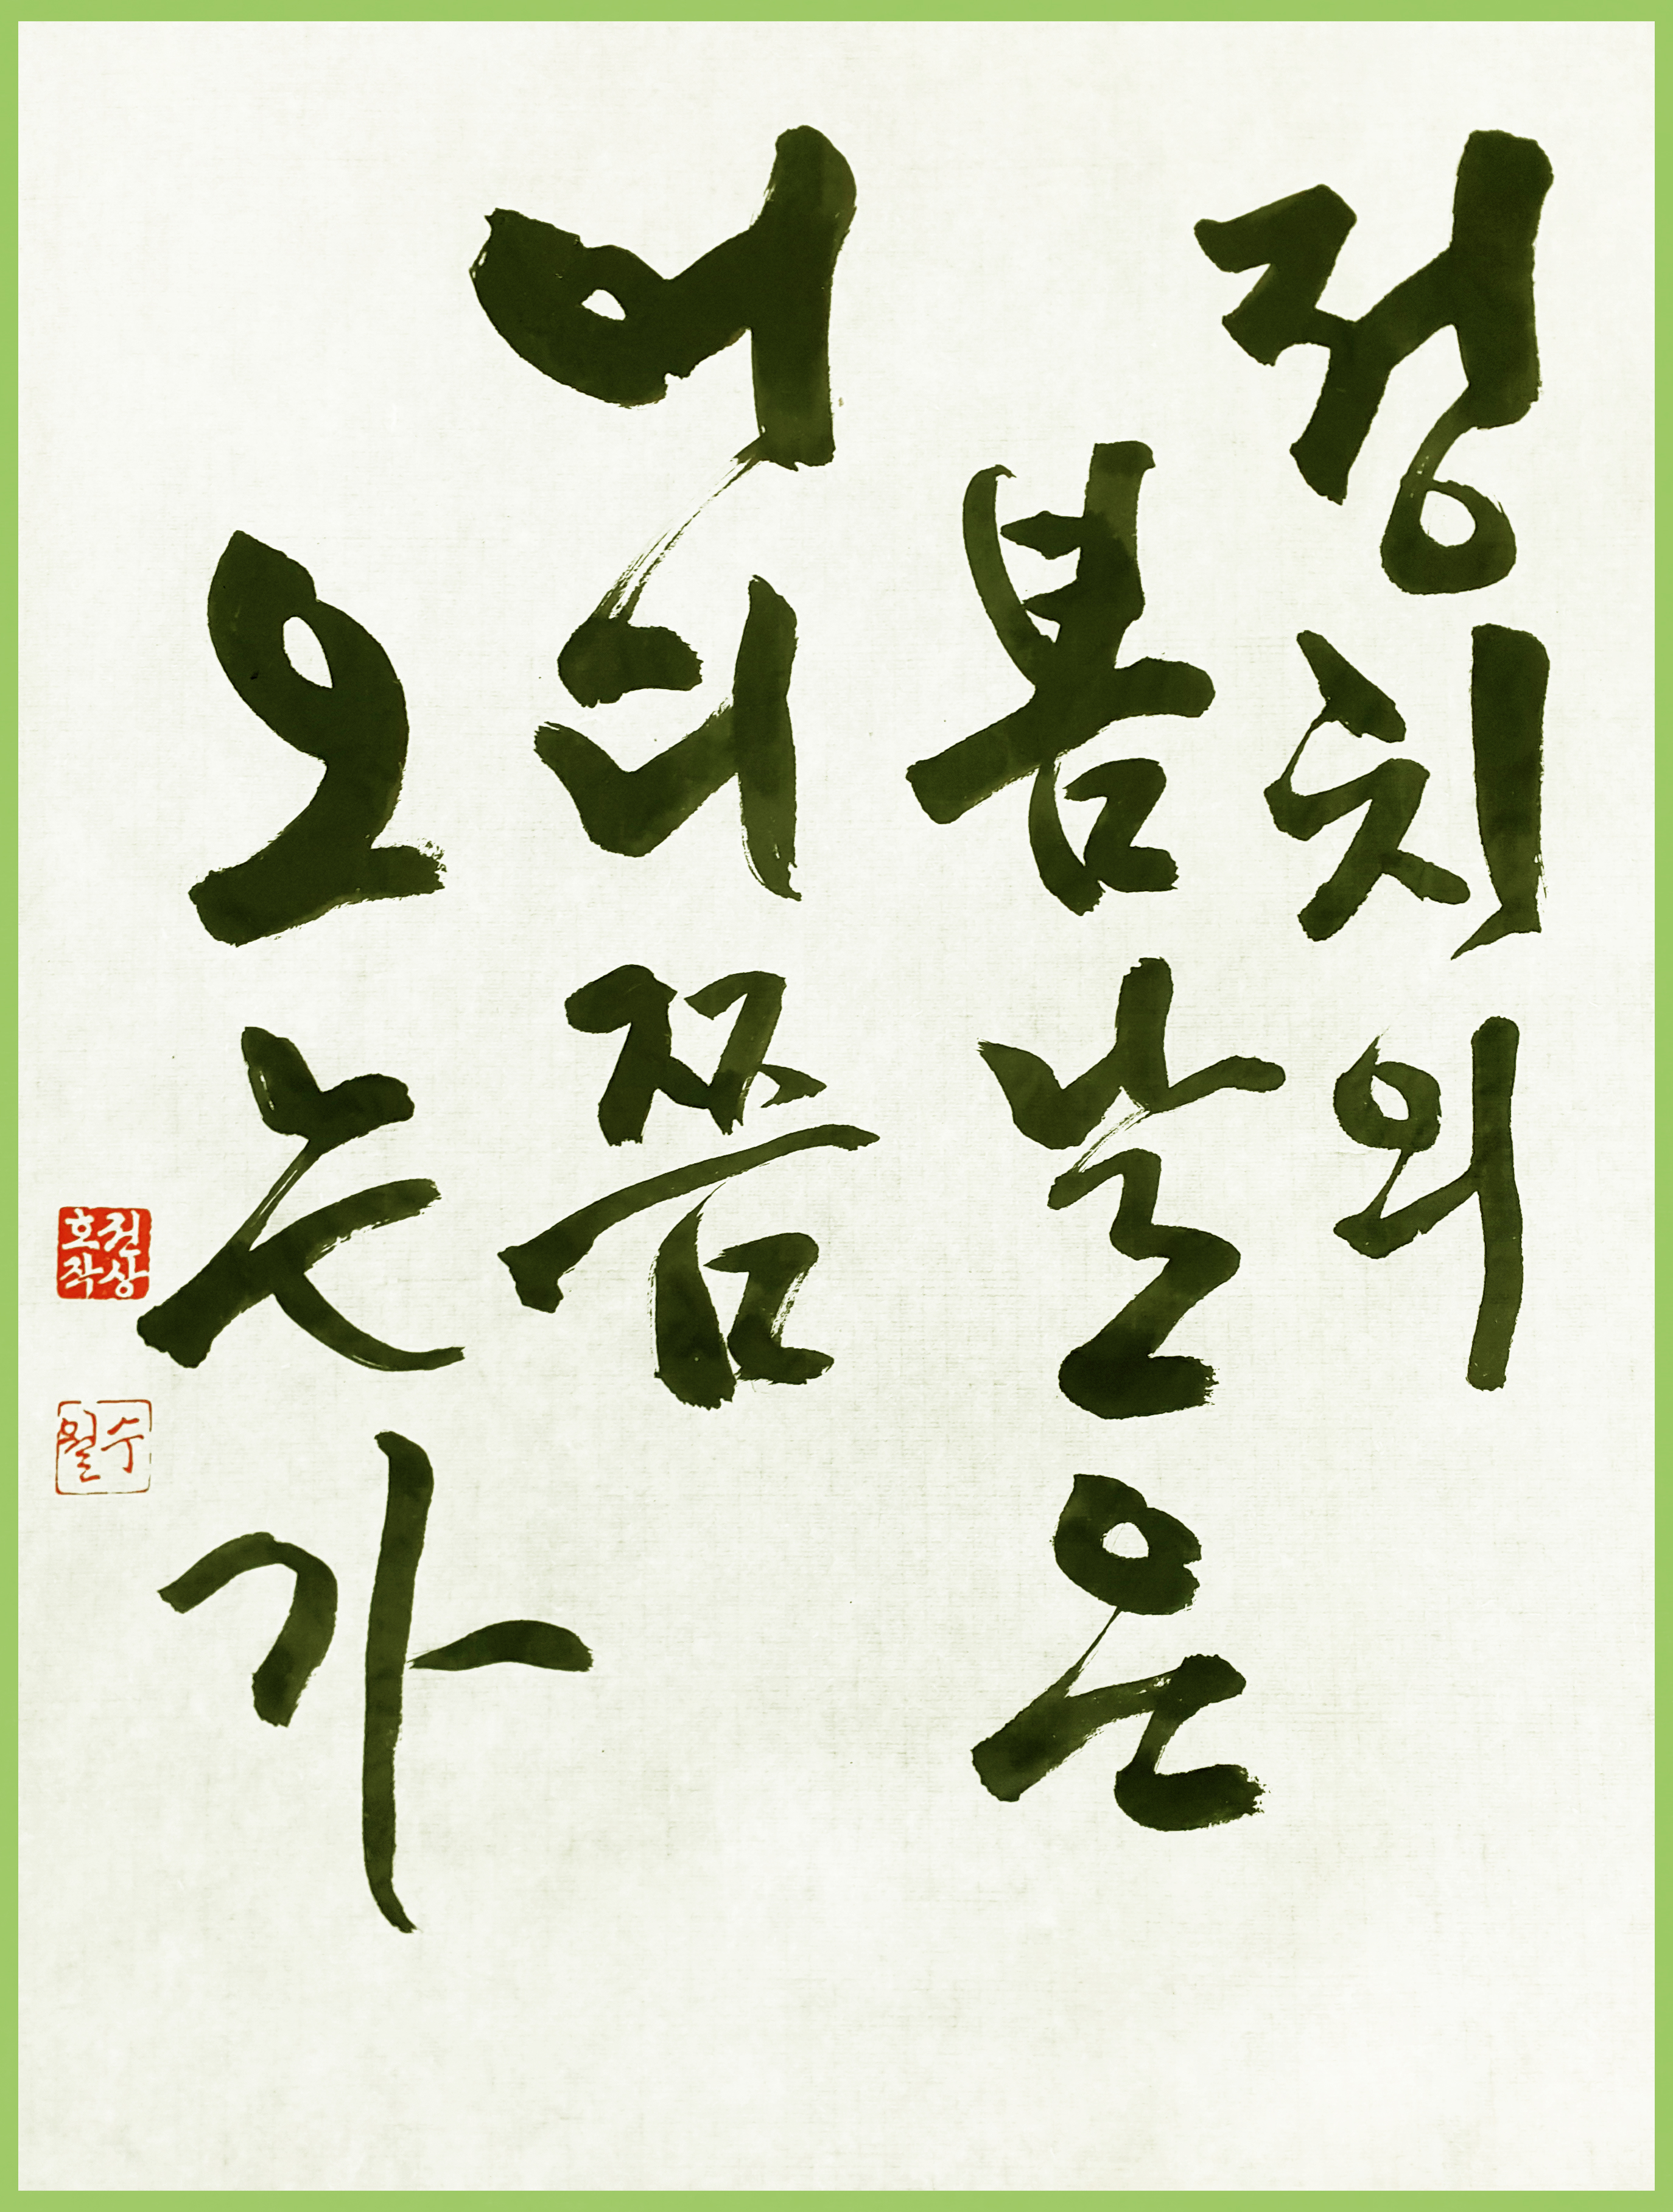 정치의
봄날은
어디쯤
오는가
권상
호작
수월